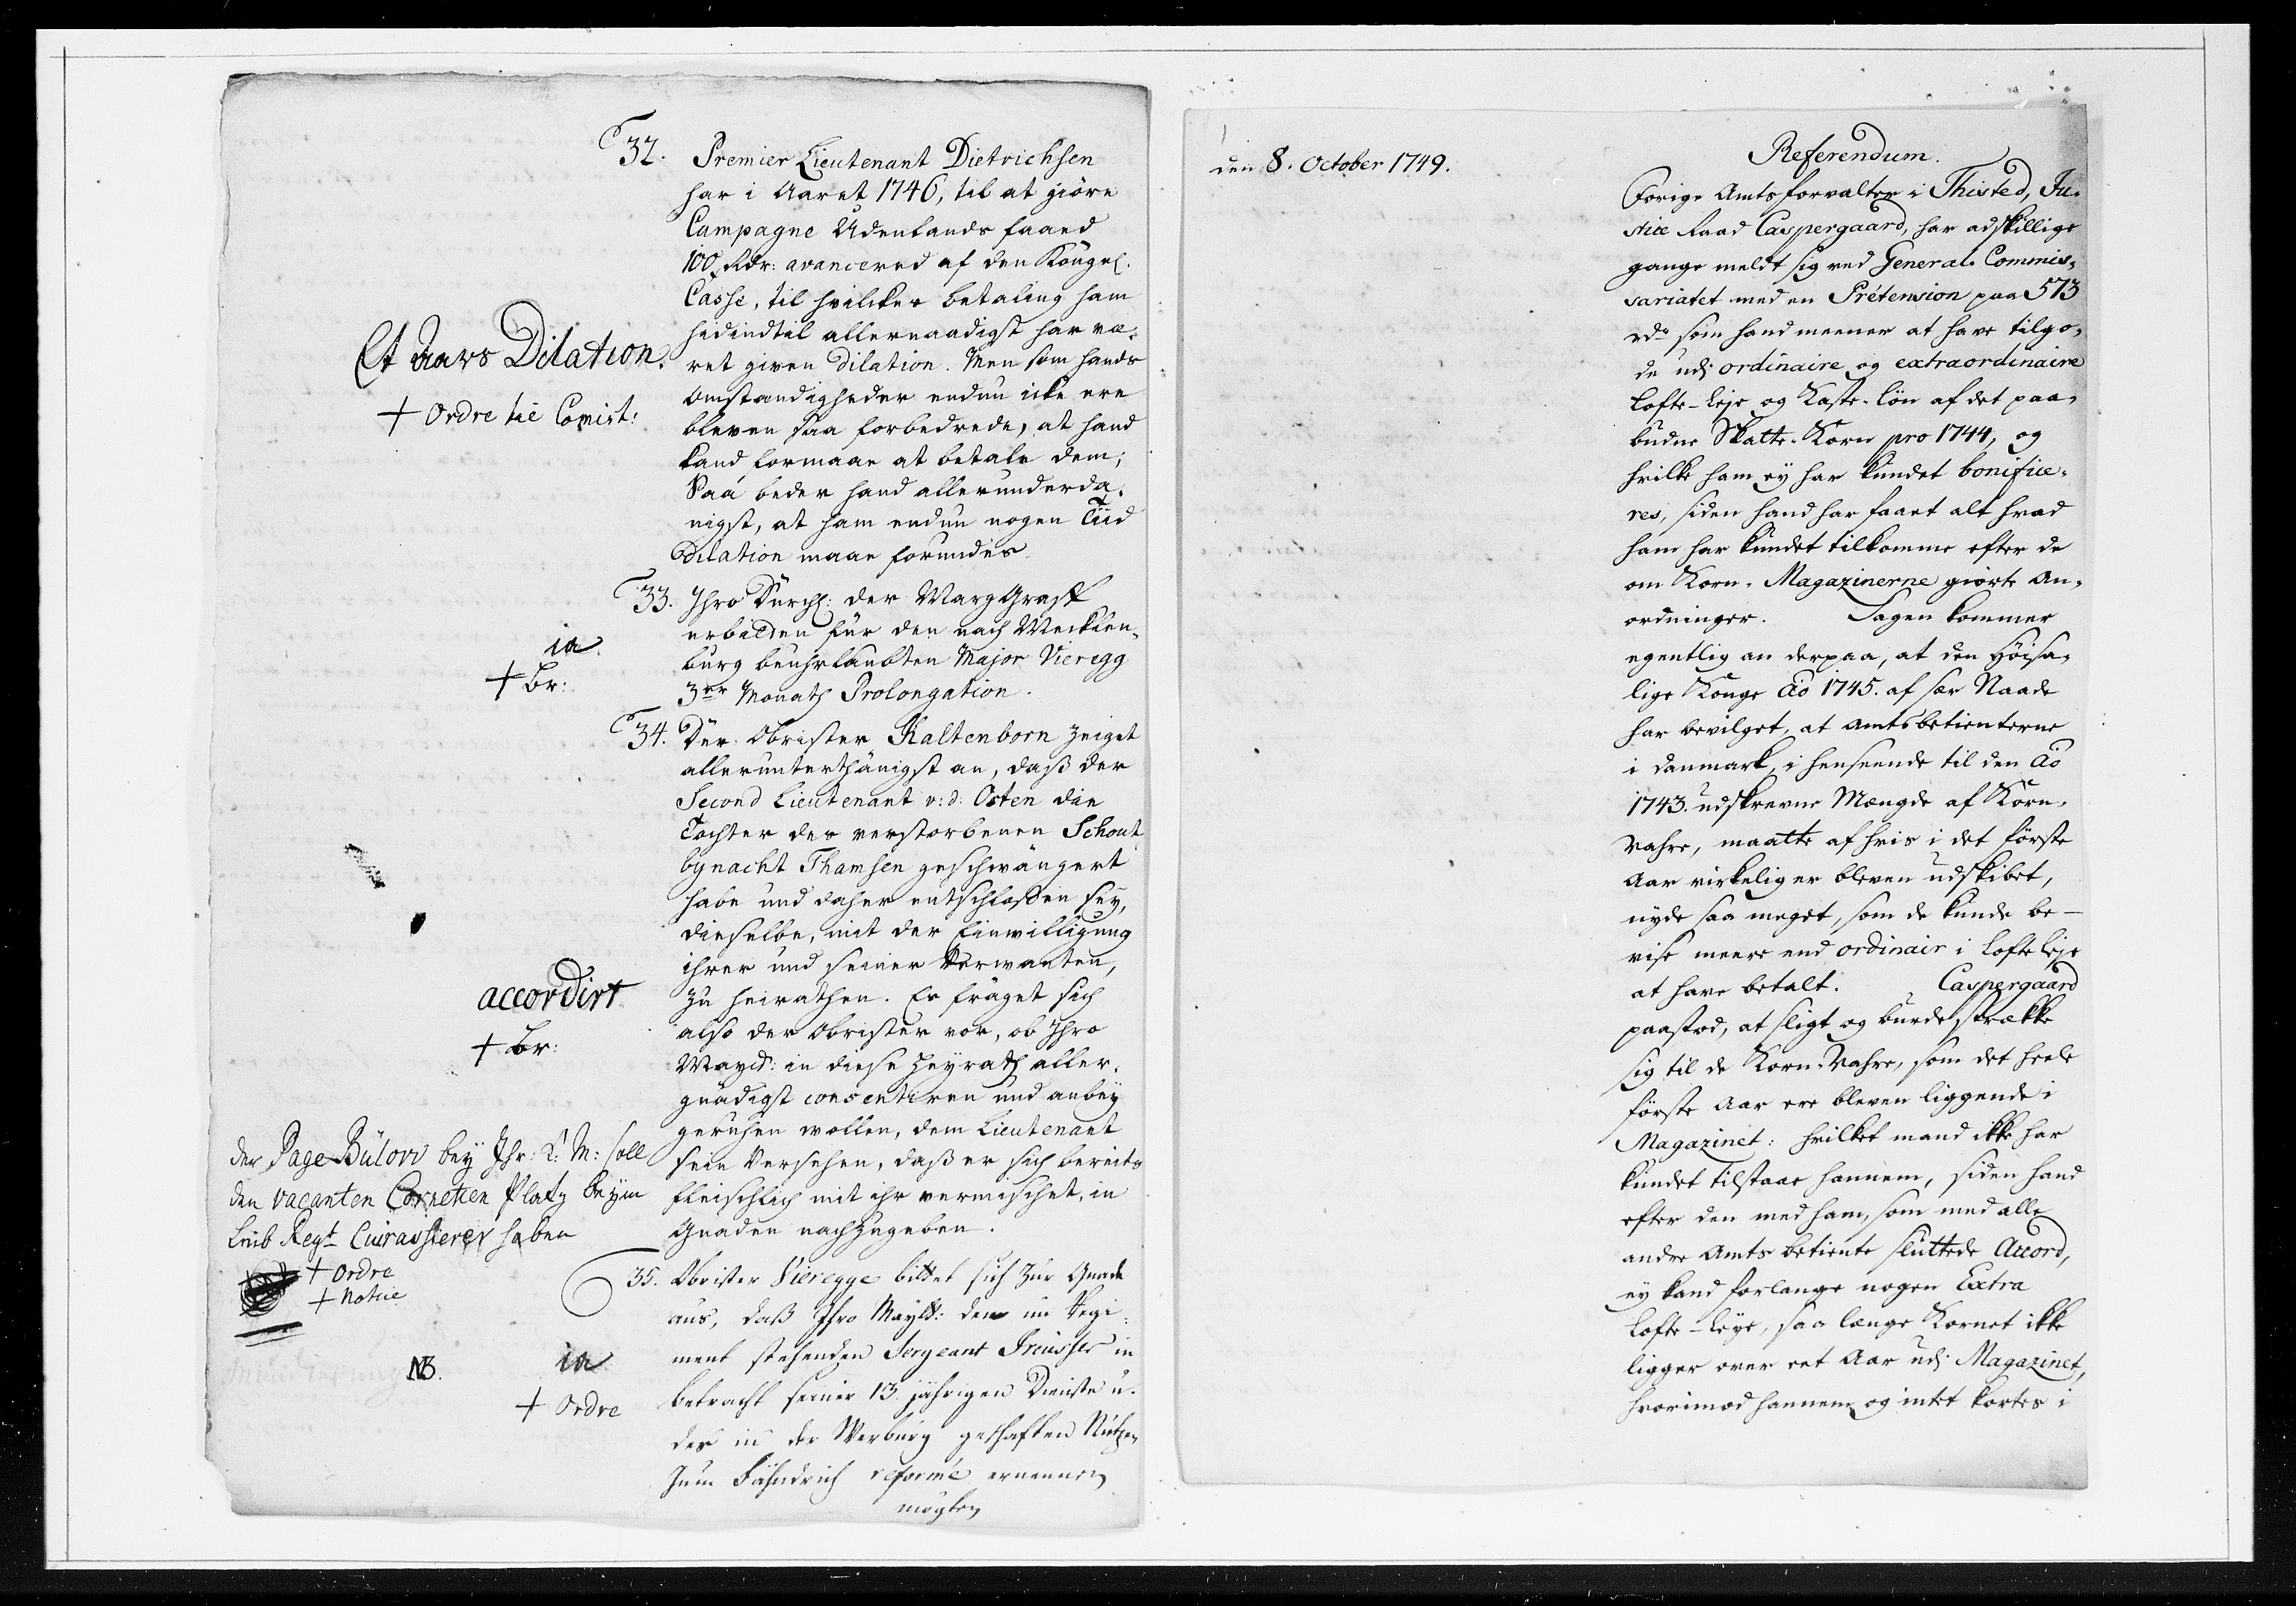 32. Premier Lieutenant Dietrichsen
har i Aaret 1746, til at giöre
Campagne Udenlands faaed
100 Rdr: avancered af den Kongel.
Casse, til hvilcker betaling ham
hidindtil allernaadigst har væ-
ret given Dilation. Men som hands
omstændigheder endnu icke ere
bleven saa forbedrede, at hand
kand formaae at betale dem;
Saa beder hand allerunderda-
nigst, at ham endnu nogen Tiid
Dilation maae forundes
Et Aars Dilation.
+ Ordre til Comist:
33. Ihro Durchl: der MargGraff
erbitten für den nach Mecklen-
burg beuhrlaubten Major Vieregg
3er Monath Prolongation.
ia
+ Br:
34. Der Obrister Kaltenborn zeiget
allerunterthänigst an, daß der
Second Lieutenant v: d: Osten die
Tochter des verstorbenen Schout
bynacht Thamsen geschwängert
habe und daher entschlossen sey,
dieselbe, mit der Einwilligung
ihrer und seiner Verwanten,
zu heirathen. Es fräget sich
also der Obrister vor, ob Ihro
Mayst: in diese Heyrath aller-
gnädigst consentiren und anbey
geruhen wollen, dem Lieutenant
sein Versehen, daß er sich bereits
fleischlich mit ihr vermischet, in
Gnaden nachzugeben.
accordirt
+ Br:
der Page Bülow bey Ihr: K: M: soll
den vacanten Cornetten Platz beym
Leib Regt Cuirassierer haben
+ Ordre
+ Notice
35. Obrister Vieregge bittet sich zur Gnade
aus, daß Ihro Mayst: den im Regi-
ment stehenden Sergeant Preusser in
betracht seiner 13 jährigen Dienste u.
des in der Werbung geschafften Nutzen
zum Fähndrich reformé ernennen
mögten
NB.
ia
+ Ordre
den 8. October 1749.
Referendum.
Forige Amtsforvalter i Thisted, Ju-
stice Raad Caspergaard, har adskillige
gange meldt sig ved General-Commis-
sariatet med en Prétension paa 573
rdr som hand meener at have tilgo-
de udj ordinaire og extraordinaire
Lofte-Leje og Kaste-lön af det paa-
budne Skatte-Korn pro 1744, og
hvilke ham ey har kundet bonifice-
res, siden hand har faaet alt hvad
ham har kundet tilkomme efter de
om Korn-Magazinerne giorte An-
ordninger. Sagen kommer
egentlig an derpaa, at den Höisa-
lige Konge Ao 1745. af sær Naade
har bevilget, at Amtsbetienterne
i Danmark, i henseende til den Ao
1743. udskrevne Mængde af Korn-
Vahre, maatte af hvis i det förste
Aar virkelig er bleven udskibet,
nyde saa meget, som de kunde be-
vise meere end ordinair i Lofteleje
at have betalt. Caspergaard
paastod, at sligt og burde strække
sig til de Korn-Vahre, som det heele
förste Aar ere bleven liggende i
Magazinet: hvilket mand ikke har
kundet tilstaae hannem, siden hand
efter den med ham, som med alle
andre Amts betiente sluttede Accord,
ey kand forlange nogen Extra
Lofte-leye, saa længe Kornet ikke
ligger over eet Aar udj Magazinet,
hvorimod hannem og intet kortes i